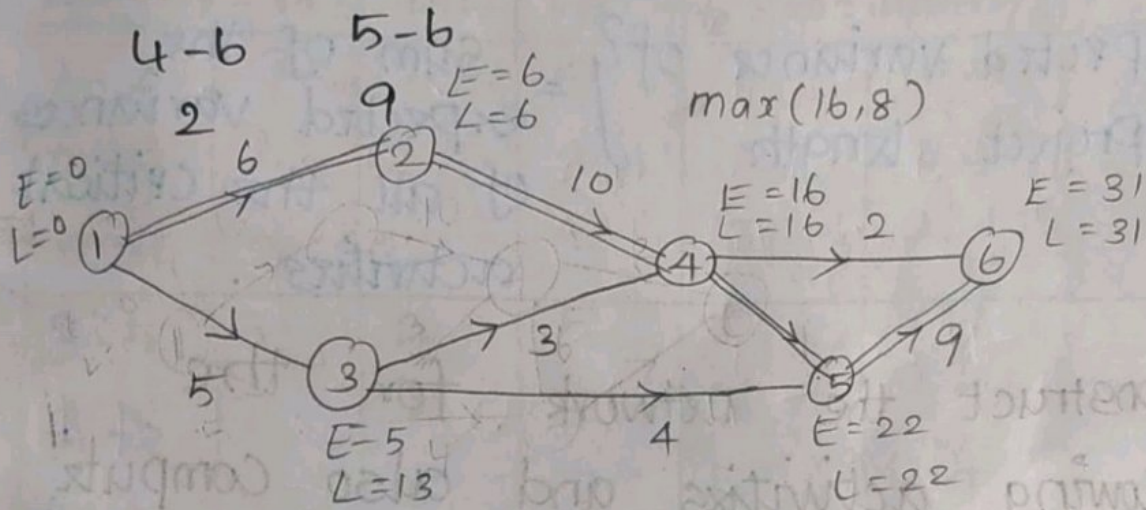 4-6 5-6
2 9
E=6
L=6
max(16,8)
6
2
10
E=0
L=0
1
E=16
L=16
2
E=31
L=31
4
6
3
5
3
9
5
4
E-5
L=13
E=22
L=22
1.